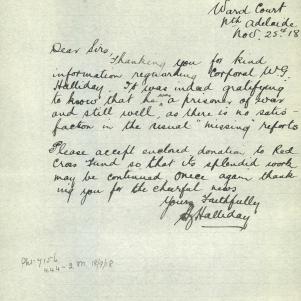 Ward Court
Nth Adelaide
Nov. 25th 18
Dear Sirs,
Thanking you for kind
information regarding Corporal W.G.
Halliday. It was indeed gratifying
to know that he was a prisoner of war
and still well, as there is no satis
faction in the usual "missing" reports
Please accept enclosed donation to Red
Cross Fund so that its splendid work
may be continued. Once again thank
ing you for the cheerful news
Yours Faithfully
Halliday